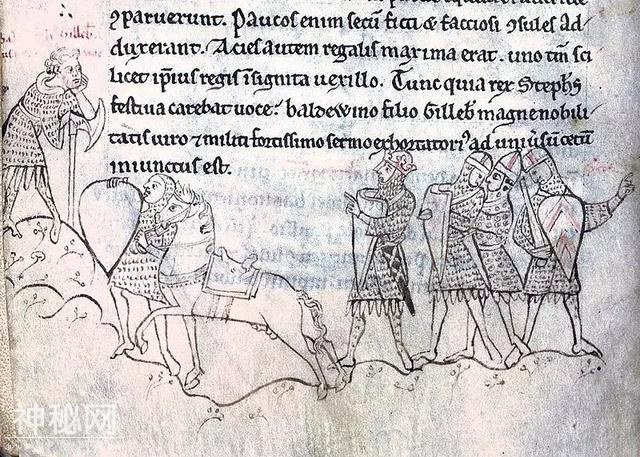 ꝯparuerunt. Paucos enim secū ficti ⁊ factiosi ꝯsules ad
duxerant. Acies autem regalis maxima erat. uno tm̄ sci
licet ip̄ius regis īsignita uexillo. Tunc quia rex Stephs
festiua carebat uoce: baldewino filio Gilleb magne nobili
tatis uiro ⁊ militi fortissimo sermo exhortatoriꝰ ad uniūsū cetū
iniunctus est.
神秘网